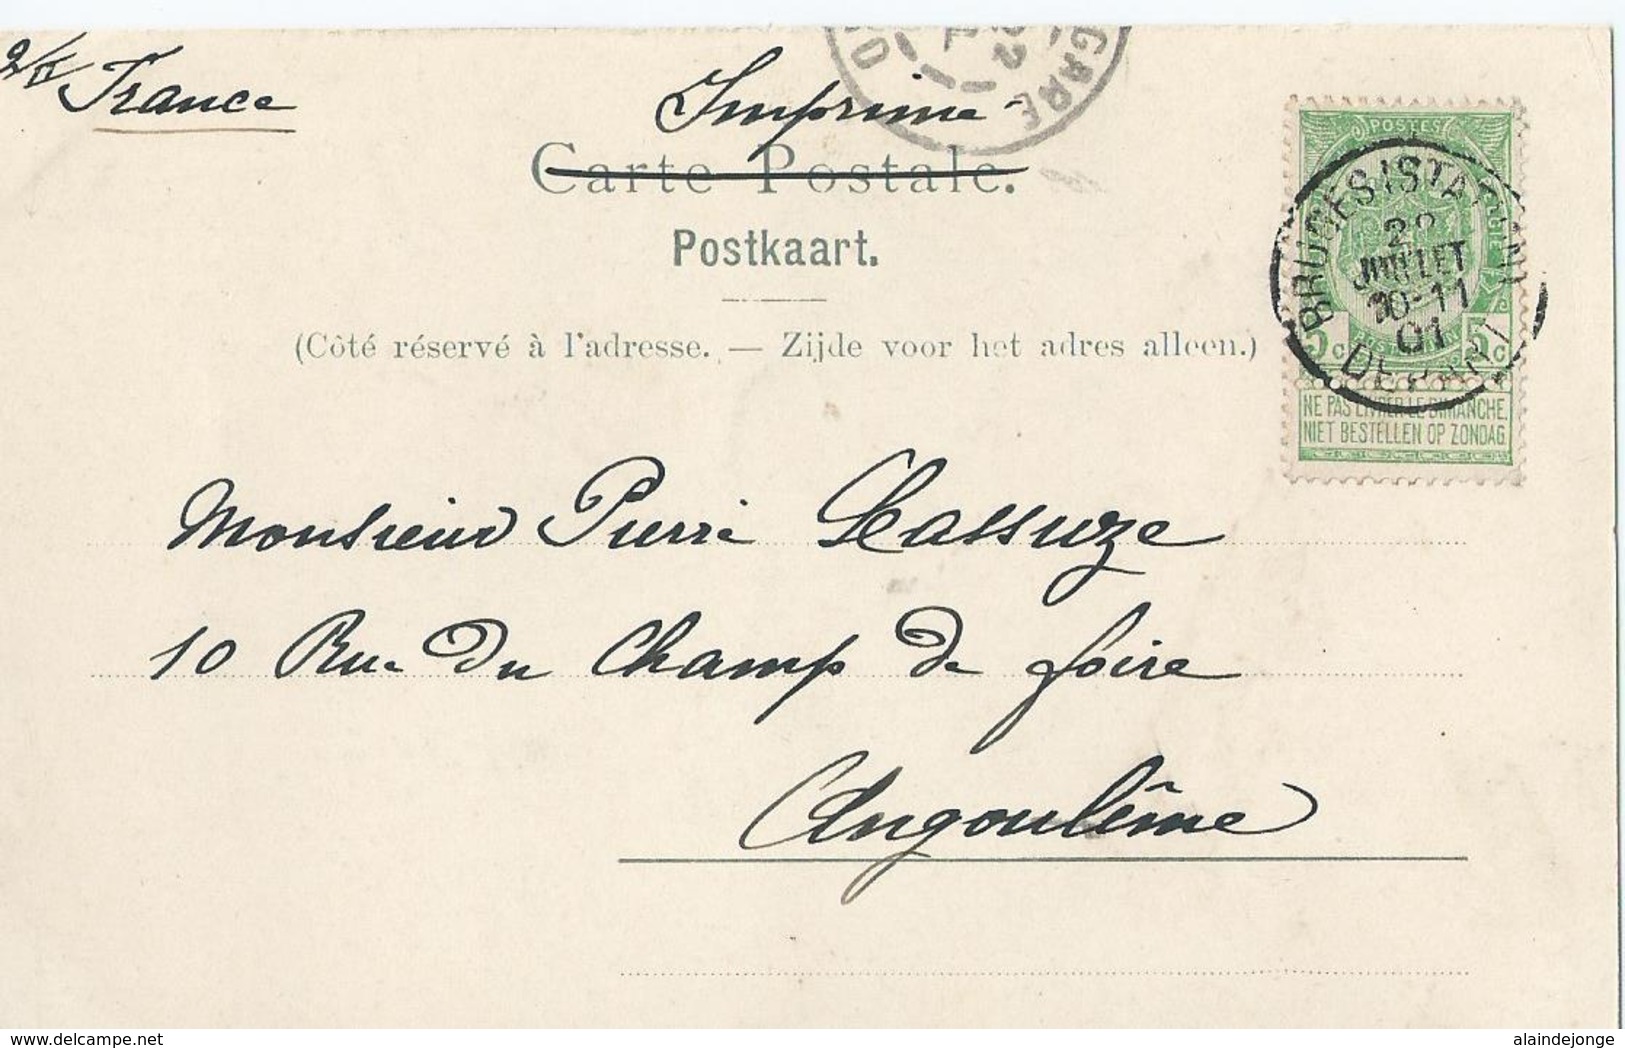 France
Imprimé
GARE
22
Carte Postale.
Postkaart.
(Côté réservé à l'adresse. — Zijde voor het adres alleen.)
POSTES
BRUGES (STATION)
JUILLET
10-11
01
DEPART
5c 5c
NE PAS LIVRER LE DIMANCHE.
NIET BESTELLEN OP ZONDAG
Monsieur Pierre
10 Rue Du Champ de foire
Angoulême
delcampe.net
alaindejonge